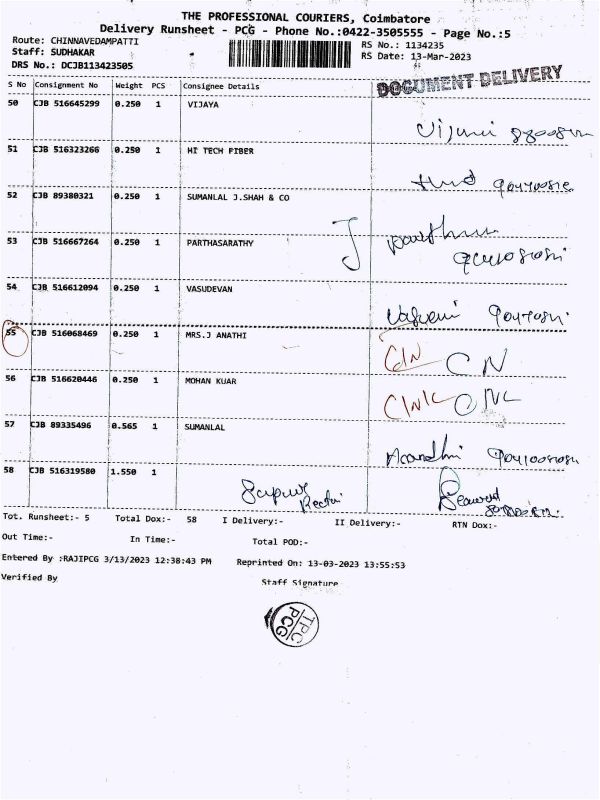 THE PROFESSIONAL COURIERS, Coimbatore
Delivery Runsheet - PCG - Phone No.:0422-3505555 - Page No.:5
Route: CHINNAVEDAMPATTI
RS No.: 1134235
Staff: SUDHAKAR
RS Date: 13-Mar-2023
DRS No.: DCJB113423505
DOCUMENT DELIVERY
S No Consignment No Weight PCS Consignee Details
50 CJB 516645299 0.250 1 VIJAYA
51 CJB 516323266 0.250 1 HI TECH FIBER
52 CJB 89380321 0.250 1 SUMANLAL J.SHAH & CO
53 CJB 516667264 0.250 1 PARTHASARATHY
54 CJB 516612094 0.250 1 VASUDEVAN
55 CJB 516068469 0.250 1 MRS.J ANATHI
CN
56 CJB 516620446 0.250 1 MOHAN KUAR
57 CJB 89335496 0.565 1 SUMANLAL
58 CJB 516319580 1.550 1
Tot. Runsheet:- 5 Total Dox:- 58 I Delivery:- II Delivery:- RTN Dox:-
Out Time:- In Time:- Total POD:-
Entered By :RAJIPCG 3/13/2023 12:38:43 PM Reprinted On: 13-03-2023 13:55:53
Verified By Staff Signature
TPC
PCG